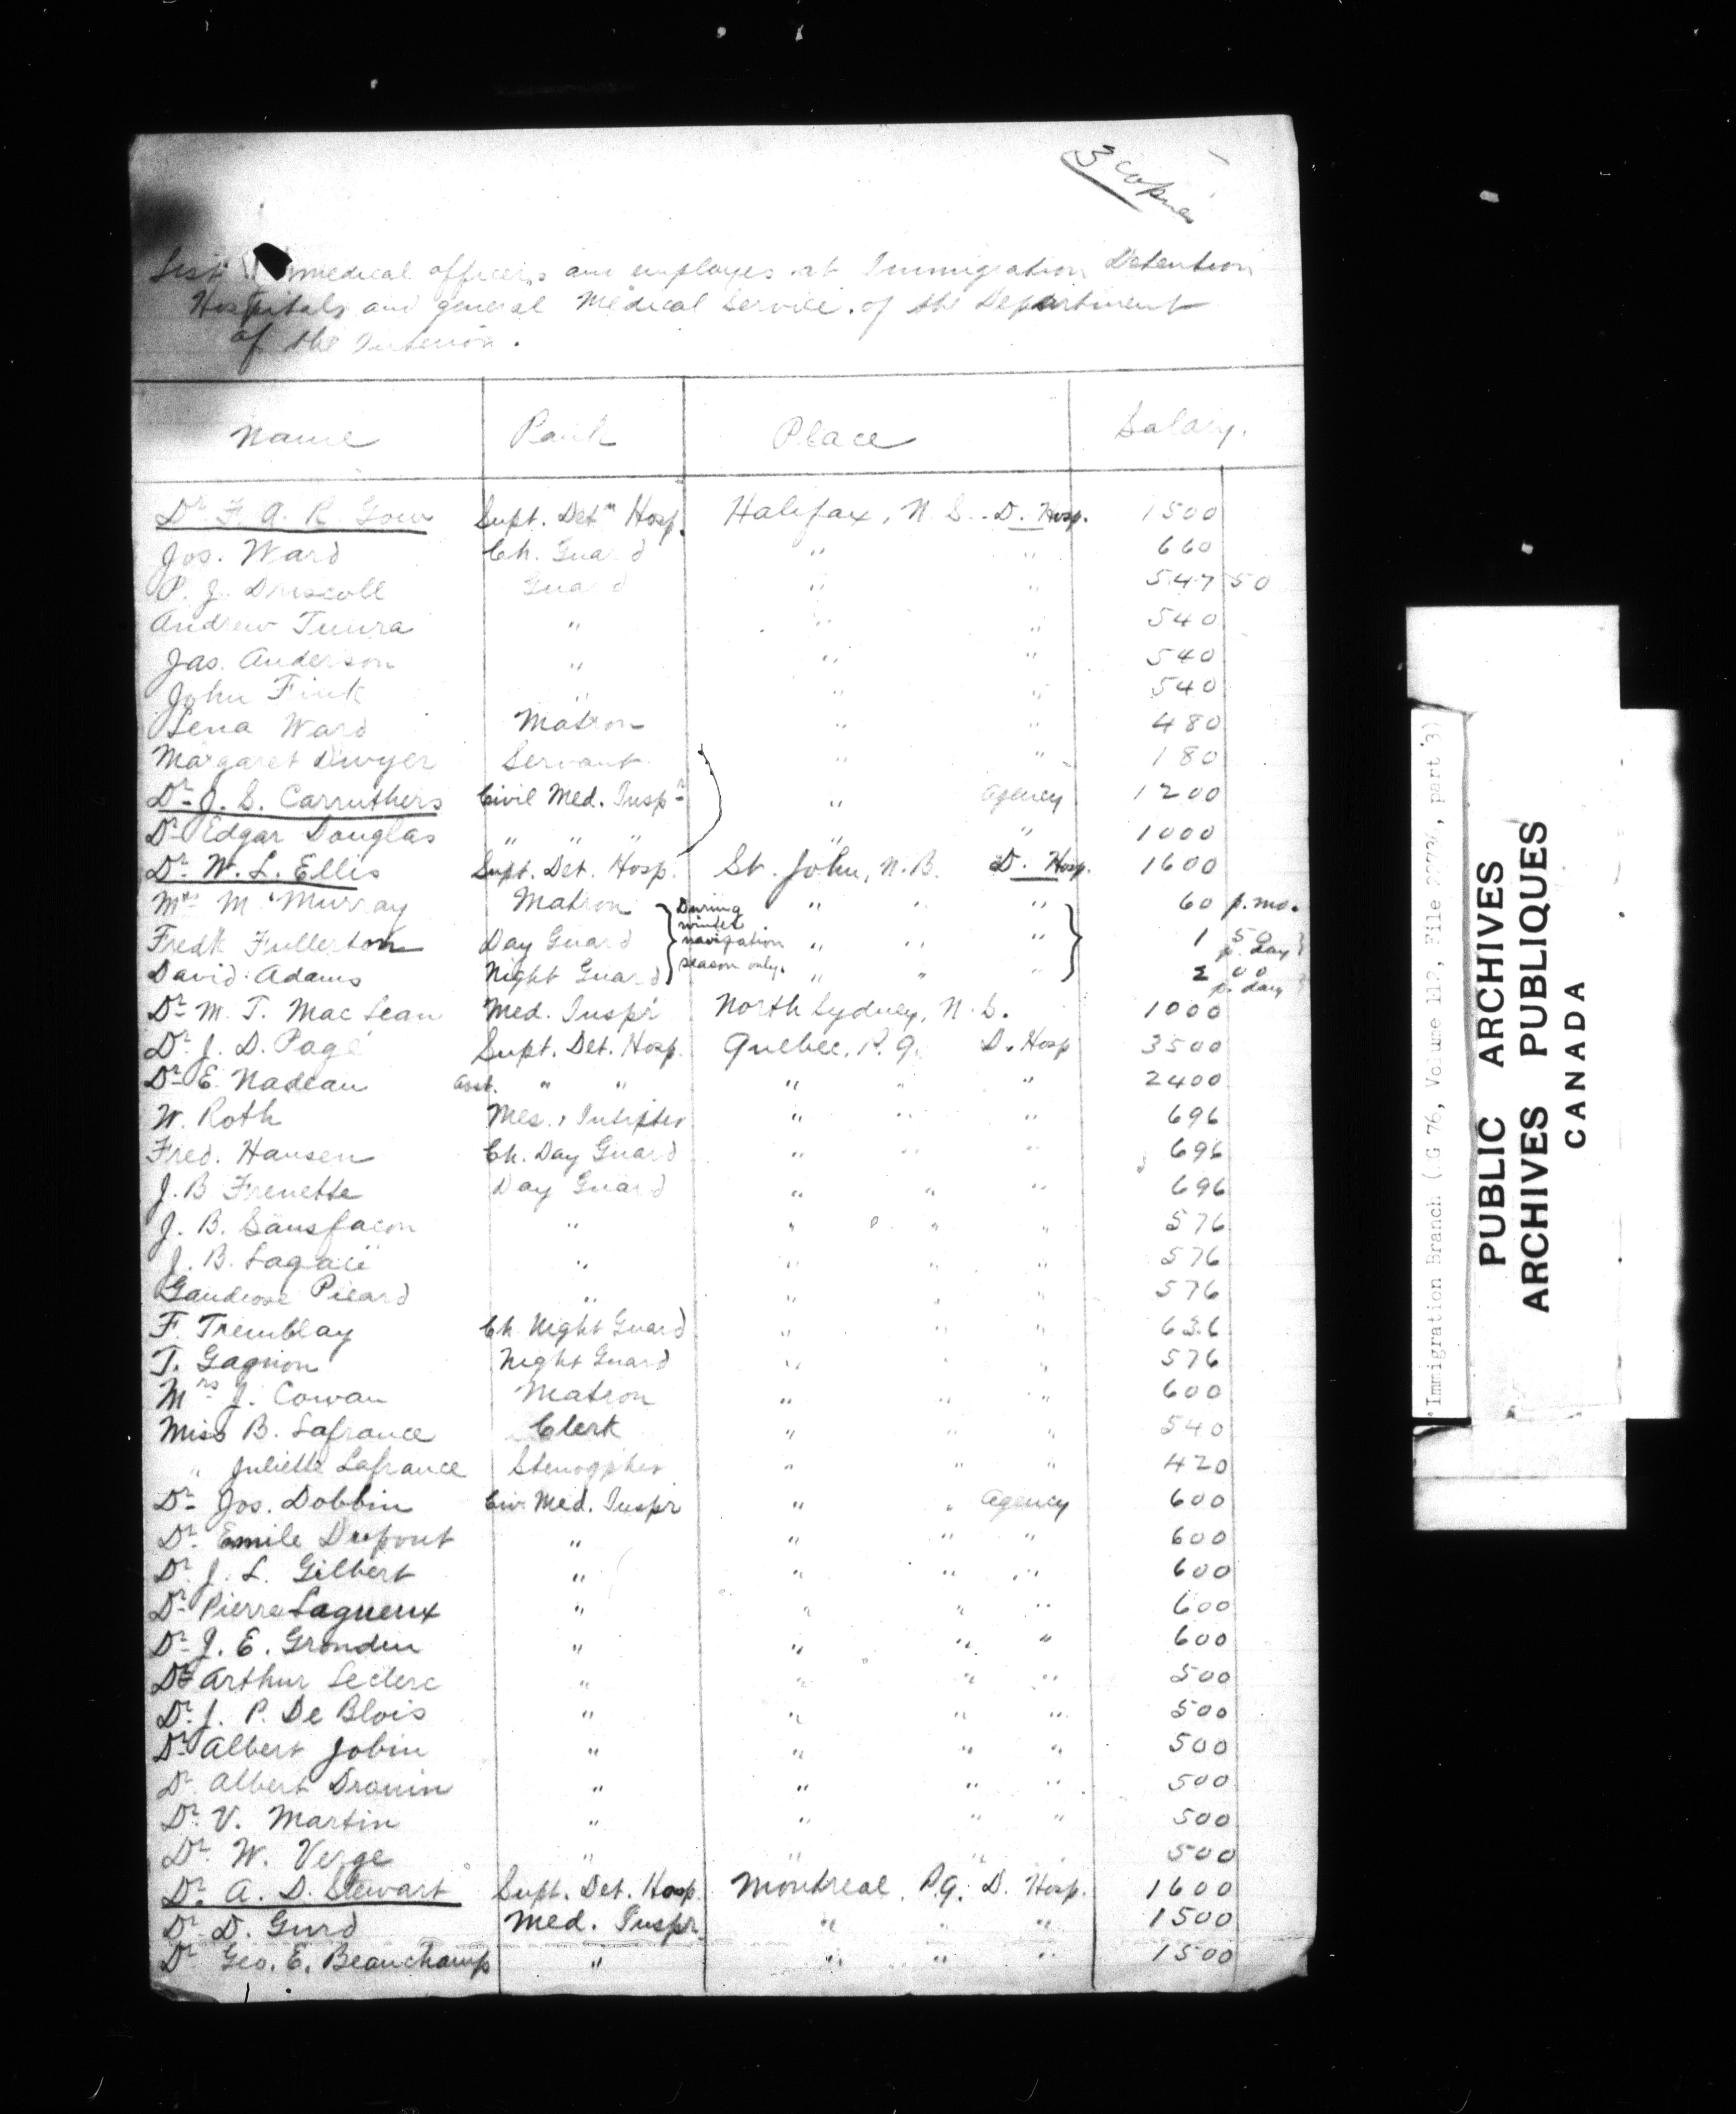 3 Copies
List medical officers and employes at Immigration Detention
Hospitals and general Medical Service of the Department
of the Interior.
Name Rank Place Salary.
Dr F. A. R. Gow Supt. Detn Hosp. Halifax, N.S. D. Hosp. 1500
Jos. Ward Ch. Guard " " 660
P. J. Driscoll Guard " " 547 50
Andrew " " " 540
Jas. Anderson " " " 540
John Fink " " " 540
Lena Ward Matron " " 480
Margaret Dwyer Servant " " 180
Dr J. S. Carruthers Civil Med. Inspr " Agency 1200
Dr Edgar Douglas " " " " " 1000
Dr W. L. Ellis Supt. Det. Hosp. St. John, N.B. D. Hosp. 1600
Mrs M. Murray Matron During " " " 60 p. mo.
winter
Fredk Fullerton Day Guard navigation " " " 1 50 p. day
David Adams Night Guard season only. " " " 2 00 p. day
Dr M. T. MacLean Med. Inspr North Sydney, N.S. 1000
Dr J. D. Pagé Supt. Det. Hosp. Quebec, P.Q. D. Hosp 3500
Dr E. Nadeau Asst. " " " " " 2400
W. Roth Mes. & Intrpter " " " 696
Fred. Hansen Ch. Day Guard " " " 696
J. B Frenette Day Guard " " " 696
J. B. Sansfacon " " " " 576
J. B. Lagacé " " " " 576
Gaudiose Picard " " " " 576
F. Tremblay Ch. Night Guard " " " 636
T. Gagnon Night Guard " " " 576
Mrs J. Cowan Matron " " " 600
Miss B. Lafrance Clerk " " " 540
" Juliette Lafrance Stenogpher " " " 420
Dr Jos. Dobbin Civ. Med. Inspr " " Agency 600
Dr Emile Dupont " " " " 600
Dr J. L. Gilbert " " " " 600
Dr Pierre Lagueux " " " " 600
Dr J. E. Grondin " " " " 600
Dr Arthur Leclerc " " " " 500
Dr J. P. De Blois " " " " 500
Dr Albert Jobin " " " " 500
Dr Albert Drouin " " " " 500
Dr V. Martin " " " " 500
Dr W. Verge " " " " 500
Dr A. D. Stewart Supt. Det. Hosp. Montreal, P.Q. D. Hosp. 1600
Dr D. Gurd Med. Inspr. " " " 1500
Dr Geo. E. Beauchamp " " " " 1500
Immigration Branch (RG 76, Volume 112, File 22734, part 3)
PUBLIC ARCHIVES
ARCHIVES PUBLIQUES
CANADA